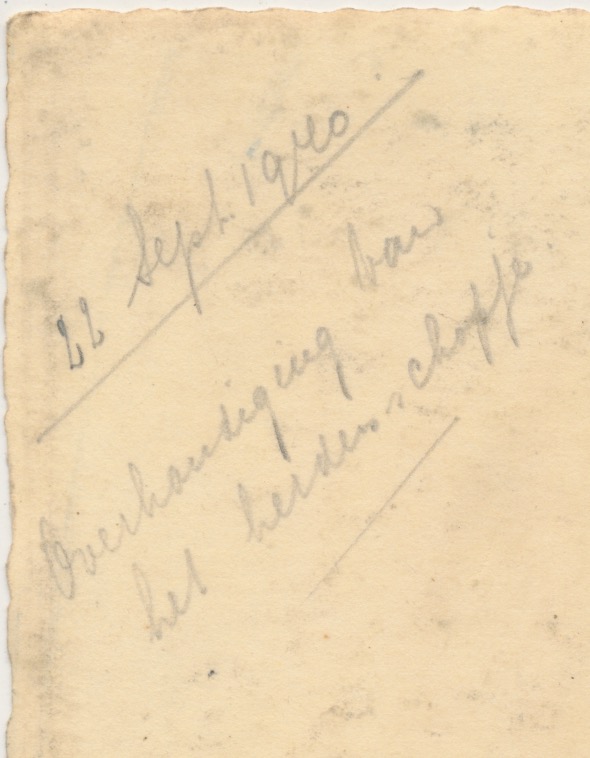 22 Sept. 1940
Overhandiging van
het herdersschopje